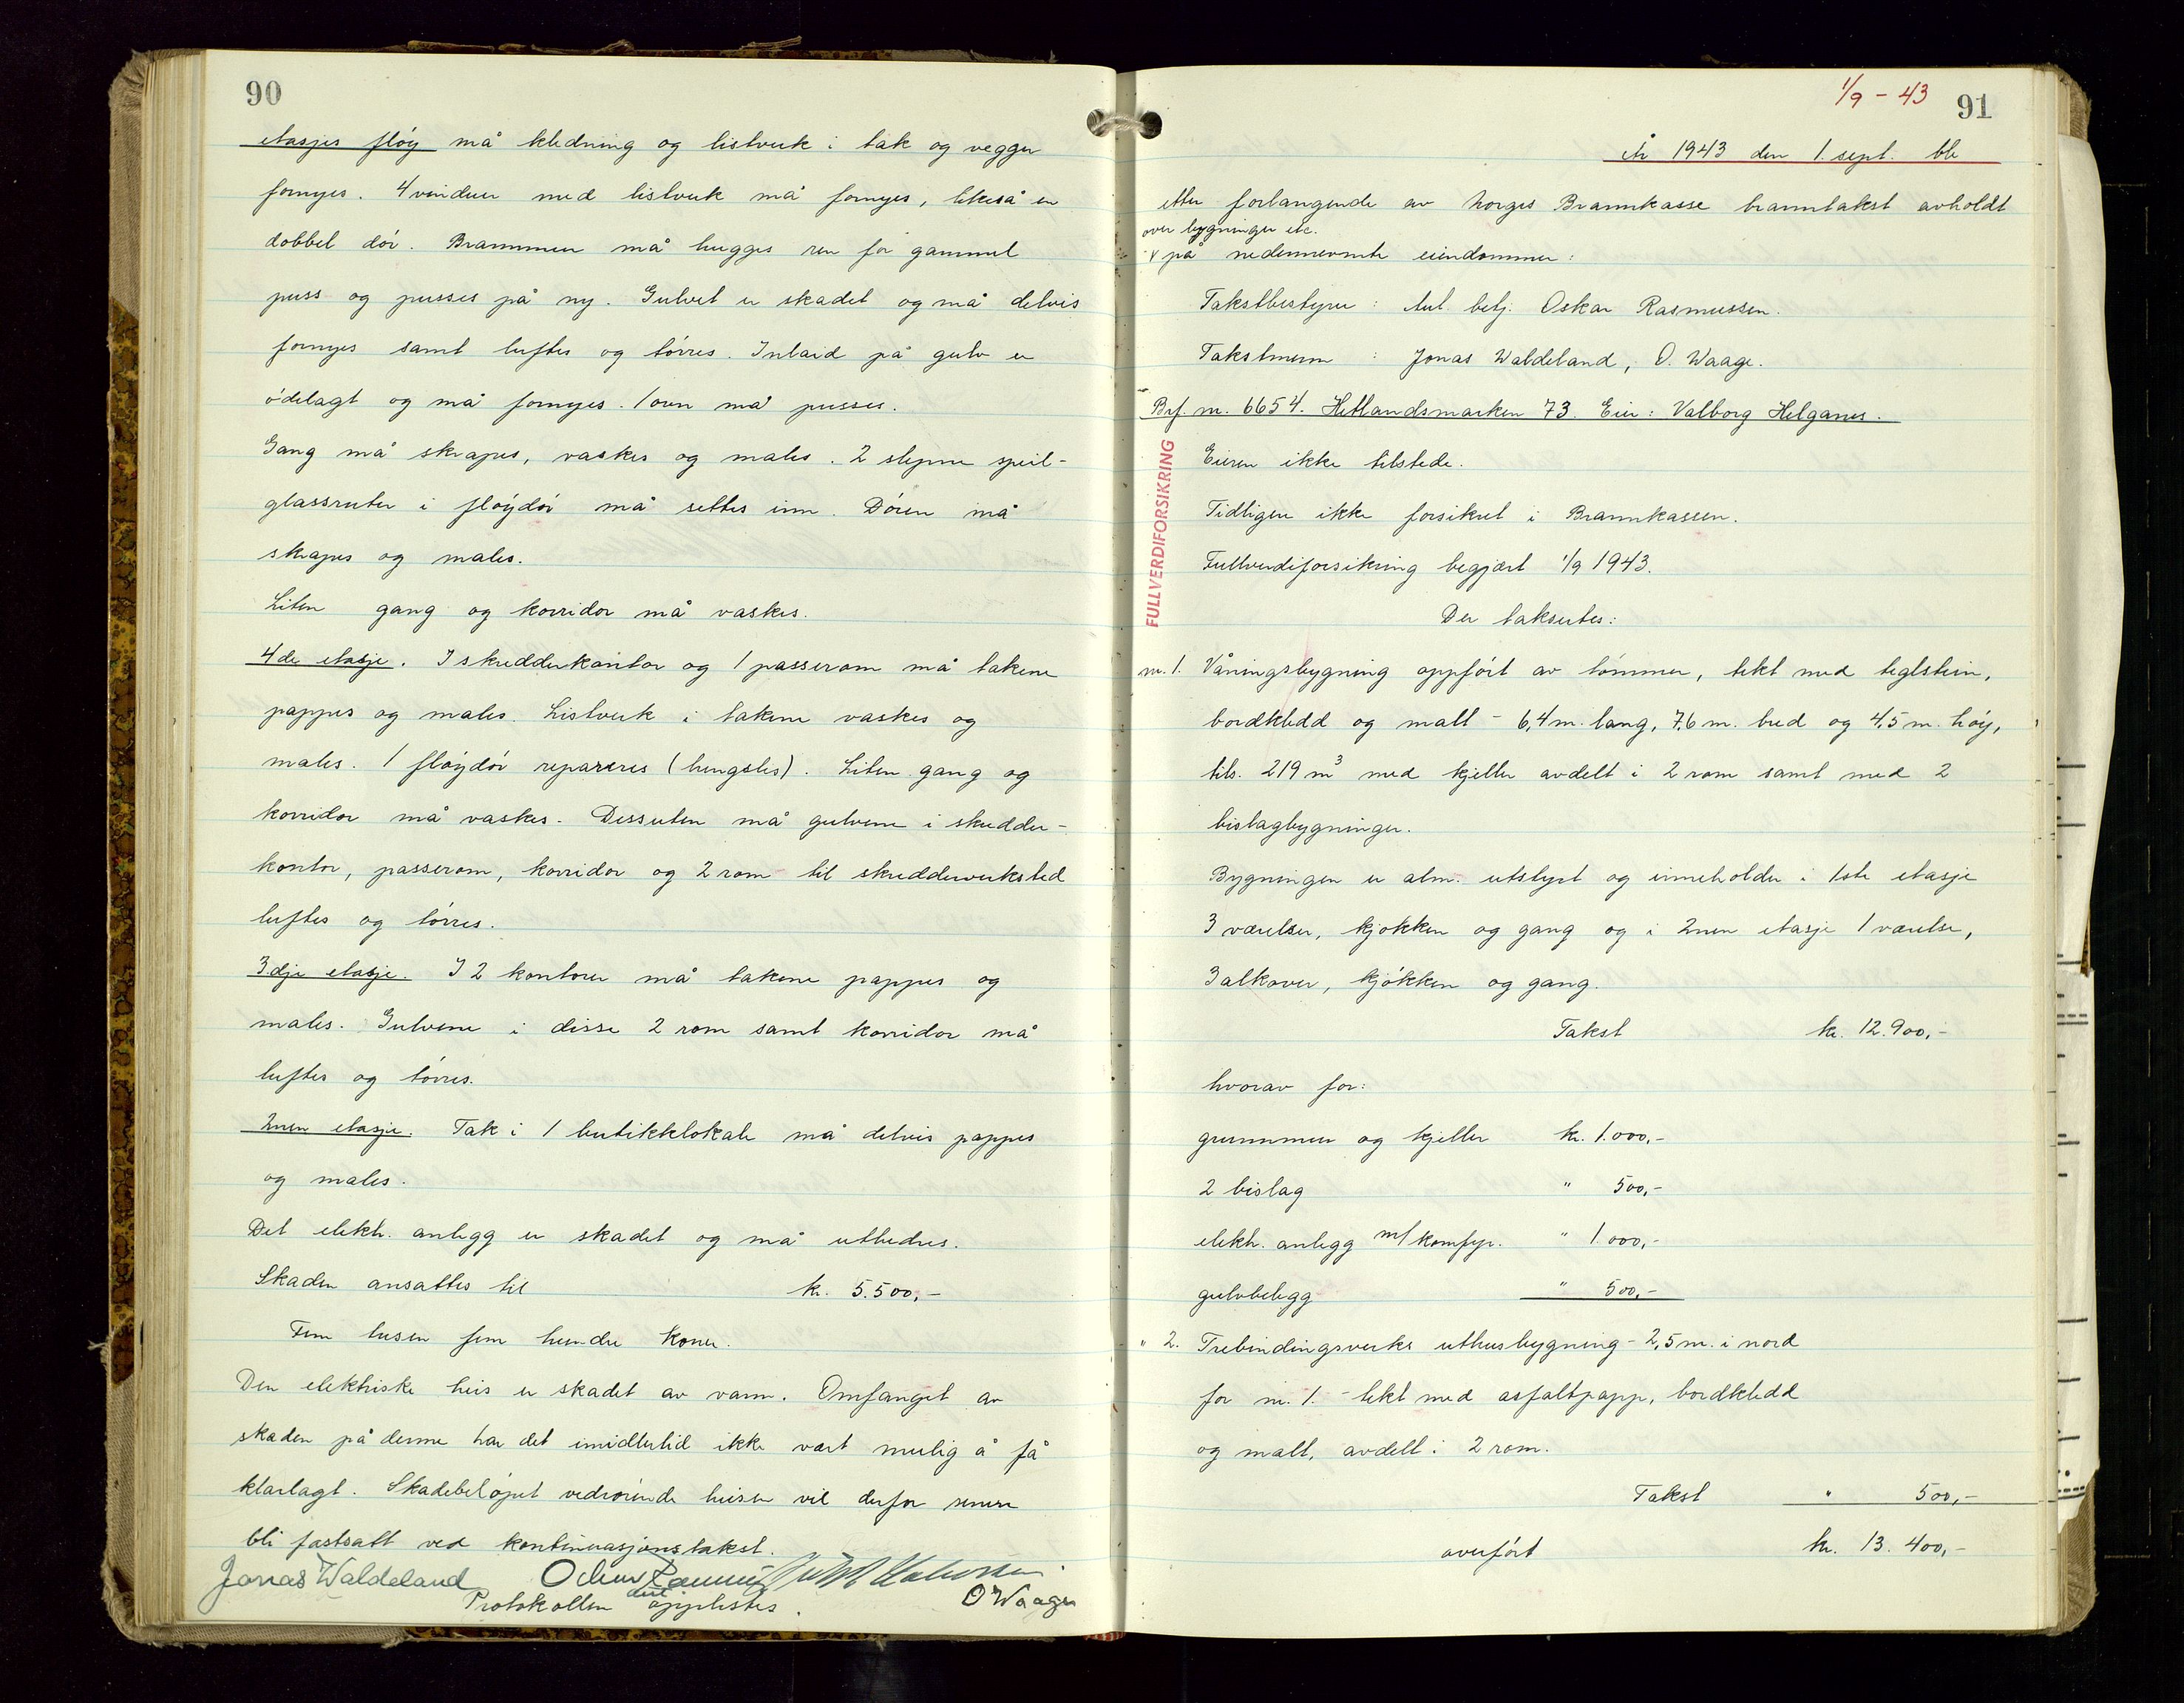 90
etasjes fløy må kledning og listverk i tak og vegger
fornyes. 4 vinduer med listverk må fornyes, likeså en
dobbel dør. Brannmuren må hugges ren for gammel
puss og pusses på ny. Gulvet er skadet og må delvis
fornyes samt luftes og tørres. Inlaid på gulv er
ødelagt og må fornyes. 1 ovn må pusses.
Gang må skrapes, vaskes og males. 2 slepne speil-
glassruter i fløydør må settes inn. Døren må
skrapes og males.
Liten gang og korridor må vaskes.
4de etasje. I skredderkontor og 1 passerom må takene
pappes og males. Listverk i takene vaskes og
males. 1 fløydør repareres (hengsles). Liten gang og
korridor må vaskes. Dessuten må gulvene i skredder-
kontor, passerom, korridor og 2 rom til skredderverksted
luftes og tørres.
3dje etasje. I 2 kontorer må takene pappes og
males. Gulvene i disse 2 rom samt korridor må
luftes og tørres.
2nen etasje. Tak i 1 butikklokale må delvis pappes
og males.
Det elektr. anlegg er skadet og må utbedres.
Skaden ansattes til kr. 5.500,-
Fem tusen fem hundre kroner.
Den elektriske heis er skadet av vann. Omfanget av
skaden på denne har det imidlertid ikke vært mulig å få
klarlagt. Skadebeløpet vedrørende heisen vil derfor senere
bli fastsatt ved kontinuasjonstakst.
Jonas Waldeland
Protokollen opplestes. O Waage
1/9 - 43
91
År 1943 den 1. sept. ble
etter forlangende av Norges Brannkasse branntakst avholdt
over bygninger etc.
v på nedennevnte eiendommer:
Takstbestyrer: Aut. betj. Oskar Rasmussen.
Takstmenn : Jonas Waldeland, O. Waage.
Brf. nr. 6654. Hetlandsmarken 73. Eier: Valborg Helganes.
FULLVERDIFORSIKRING
Eieren ikke tilstede.
Tidligere ikke forsikret i Brannkassen.
Fullverdiforsikring begjært 1/9 1943.
Der taksertes:
nr. 1. Våningsbygning oppført av tømmer, tekt med teglstein,
bordkledd og malt - 6,4 m. lang, 7,6 m. bred og 4,5 m. høy,
tils. 219 m3 med kjeller avdelt i 2 rom samt med 2
bislagbygninger.
Bygningen er alm. utstyrt og inneholder i 1ste etasje
3 værelser, kjøkken og gang og i 2nen etasje 1 værelse,
3 alkover, kjøkken og gang.
Takst kr. 12.900,-
hvorav for:
grunnmur og kjeller kr. 1.000,-
2 bislag " 500,-
elektr. anlegg m/komfyr. " 1.000,-
gulvbelegg " 500,-
" 2. Trebindingsverks uthusbygning - 2,5 m. i nord
for nr. 1. - tekt med asfaltpapp, bordkledd
og malt, avdelt i 2 rom.
Takst " 500,-
overført kr. 13.400,-